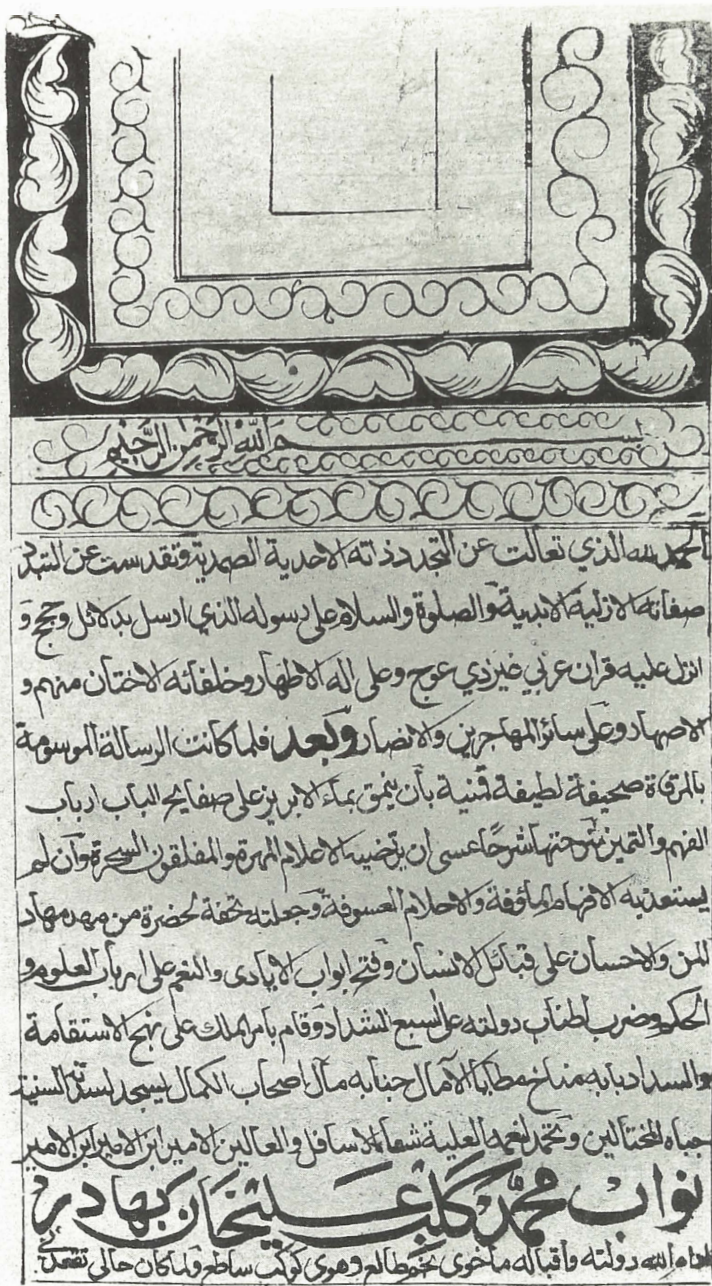 بسم الله الرحمن الرحيم
الحمد لله الذي تعالت عن التجدد ذاته الاحدية الصمدية وتقدست عن التبدد
صفاته الازلية الابدية والصلوة والسلام على رسوله الذي ارسل بدلائل وحجج و
انزل عليه قران عربي غير ذي عوج وعلى اله الاطهار وخلفائه الاختان منهم و
الاصهار وعلى سائر المهاجرين والانصار وبعد فلما كانت الرسالة الموسومة
بالمرقاة صحيفة لطيفة قمنية بأن ينمق بماء الابريز على صفايح الباب ارباب
الفهم والتميز شرحتها شرحا عسى ان يرتضيه الاعلام المهرة والمفلقون السحرة وان لم
يستعذبه الافهام المأوفة والاحلام العسوفة وجعلته تحفة لحضرة من مهد مهاد
المن والاحسان على قبائل الانسان وفتح ابواب الايادى والنعم على ارباب العلوم و
الحكم وضرب اطناب دولته على السبع الشداد وقام بامر الملك على نهج الاستقامة
والسداد بابه مناخ مطايا الآمال جنابه مآل اصحاب الكمال يسجد لسدته السنية
جباه المختالين ويحمد لنعمه العلية شفاه الاسافل والعالين الامير ابن الامير ابن الامير
نواب محمد كلب عليخان بهادر
ادام الله دولته واقباله ما خوى نجم طالع وهوى كوكب ساطع ولما كان حالى تقعدنى